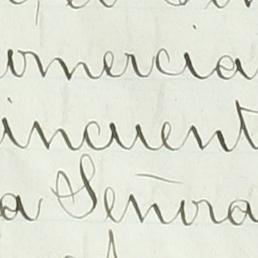 omercia
incuent
a Señora